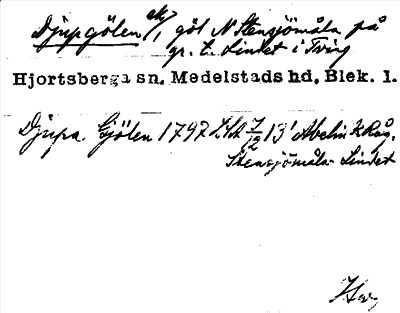 Djupgölen ek/, göl N Stensjömåla på
gr. t. Lindet i Tving
Hjortsberga sn. Medelstads hd, Blek. l.
Djupa Gjölen 1792 7/2 13'
Stensjömåla- Lindet